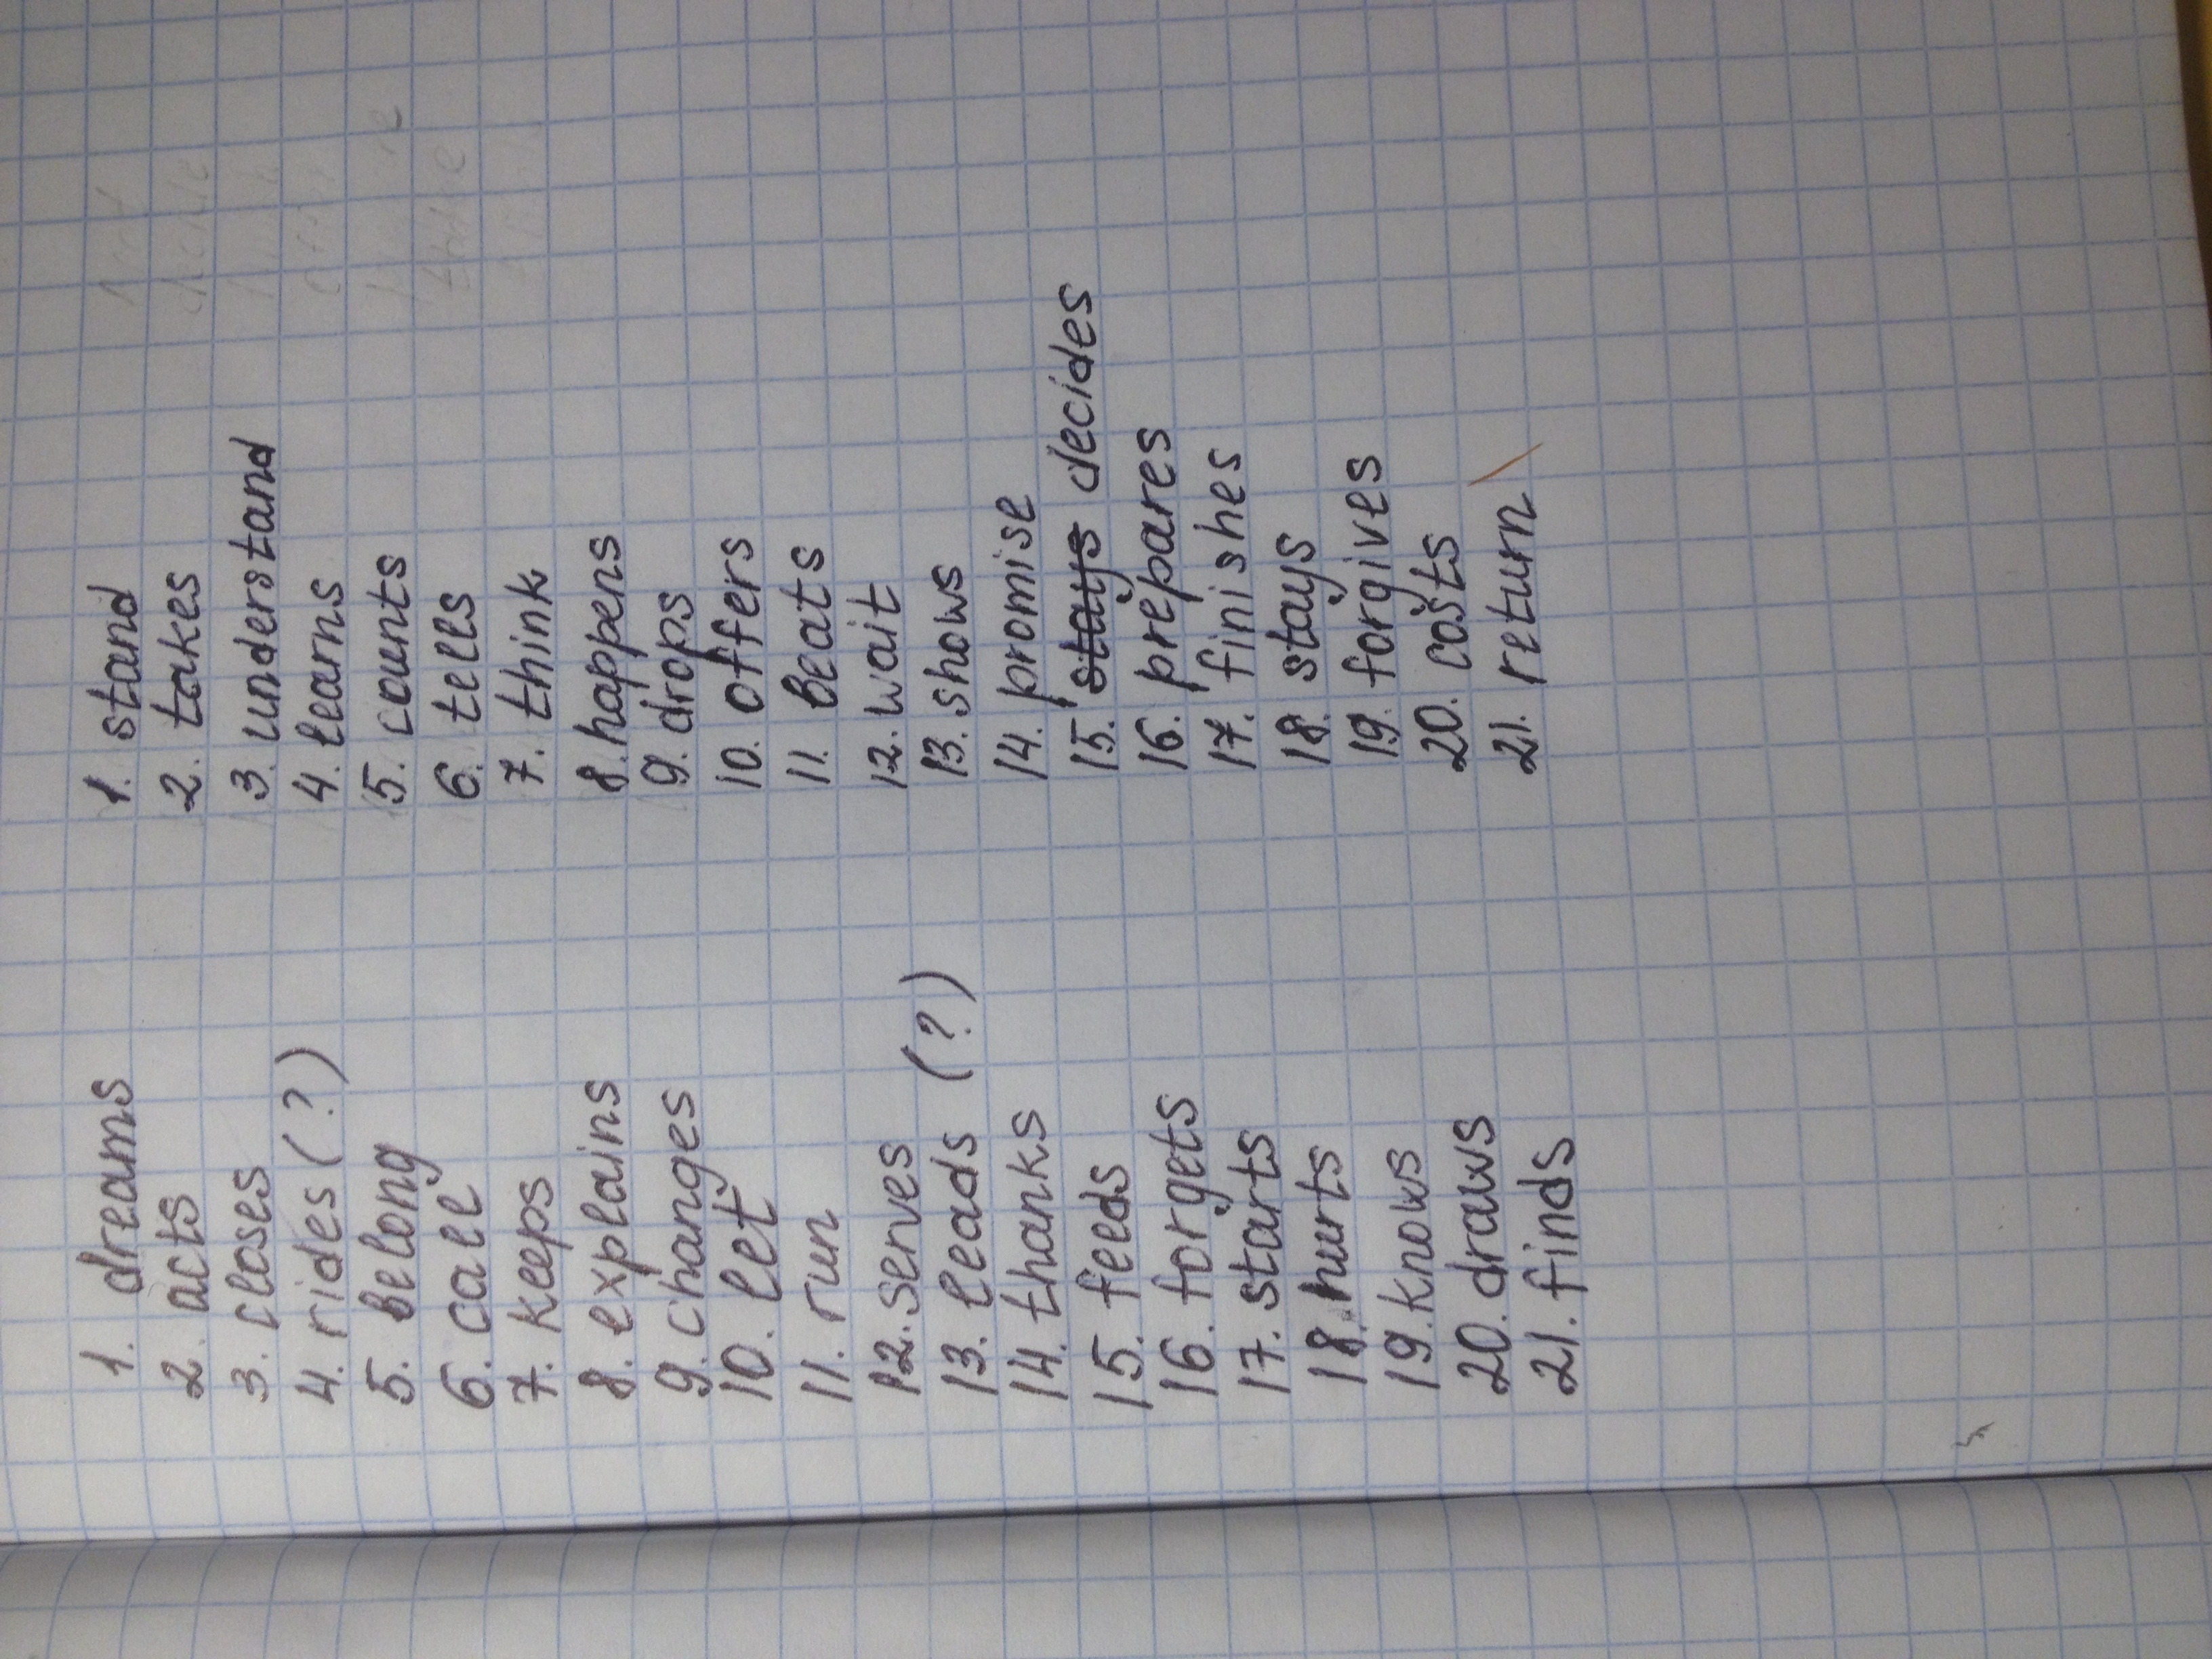 1. dreams
2. acts
3. closes
4. rides (?)
5. belong
6. call
7. keeps
8. explains
9. changes
10. let
11. run
12. serves
13. leads (?)
14. thanks
15. feeds
16. forgets
17. starts
18. hurts
19. knows
20. draws
21. finds
1. stand
2. takes
3. understand
4. learns
5. counts
6. tells
7. think
8. happens
9. drops
10. offers
11. beats
12. wait
13. shows
14. promise
15. stays decides
16. prepares
17. finishes
18. stays
19. forgives
20. costs
21. return